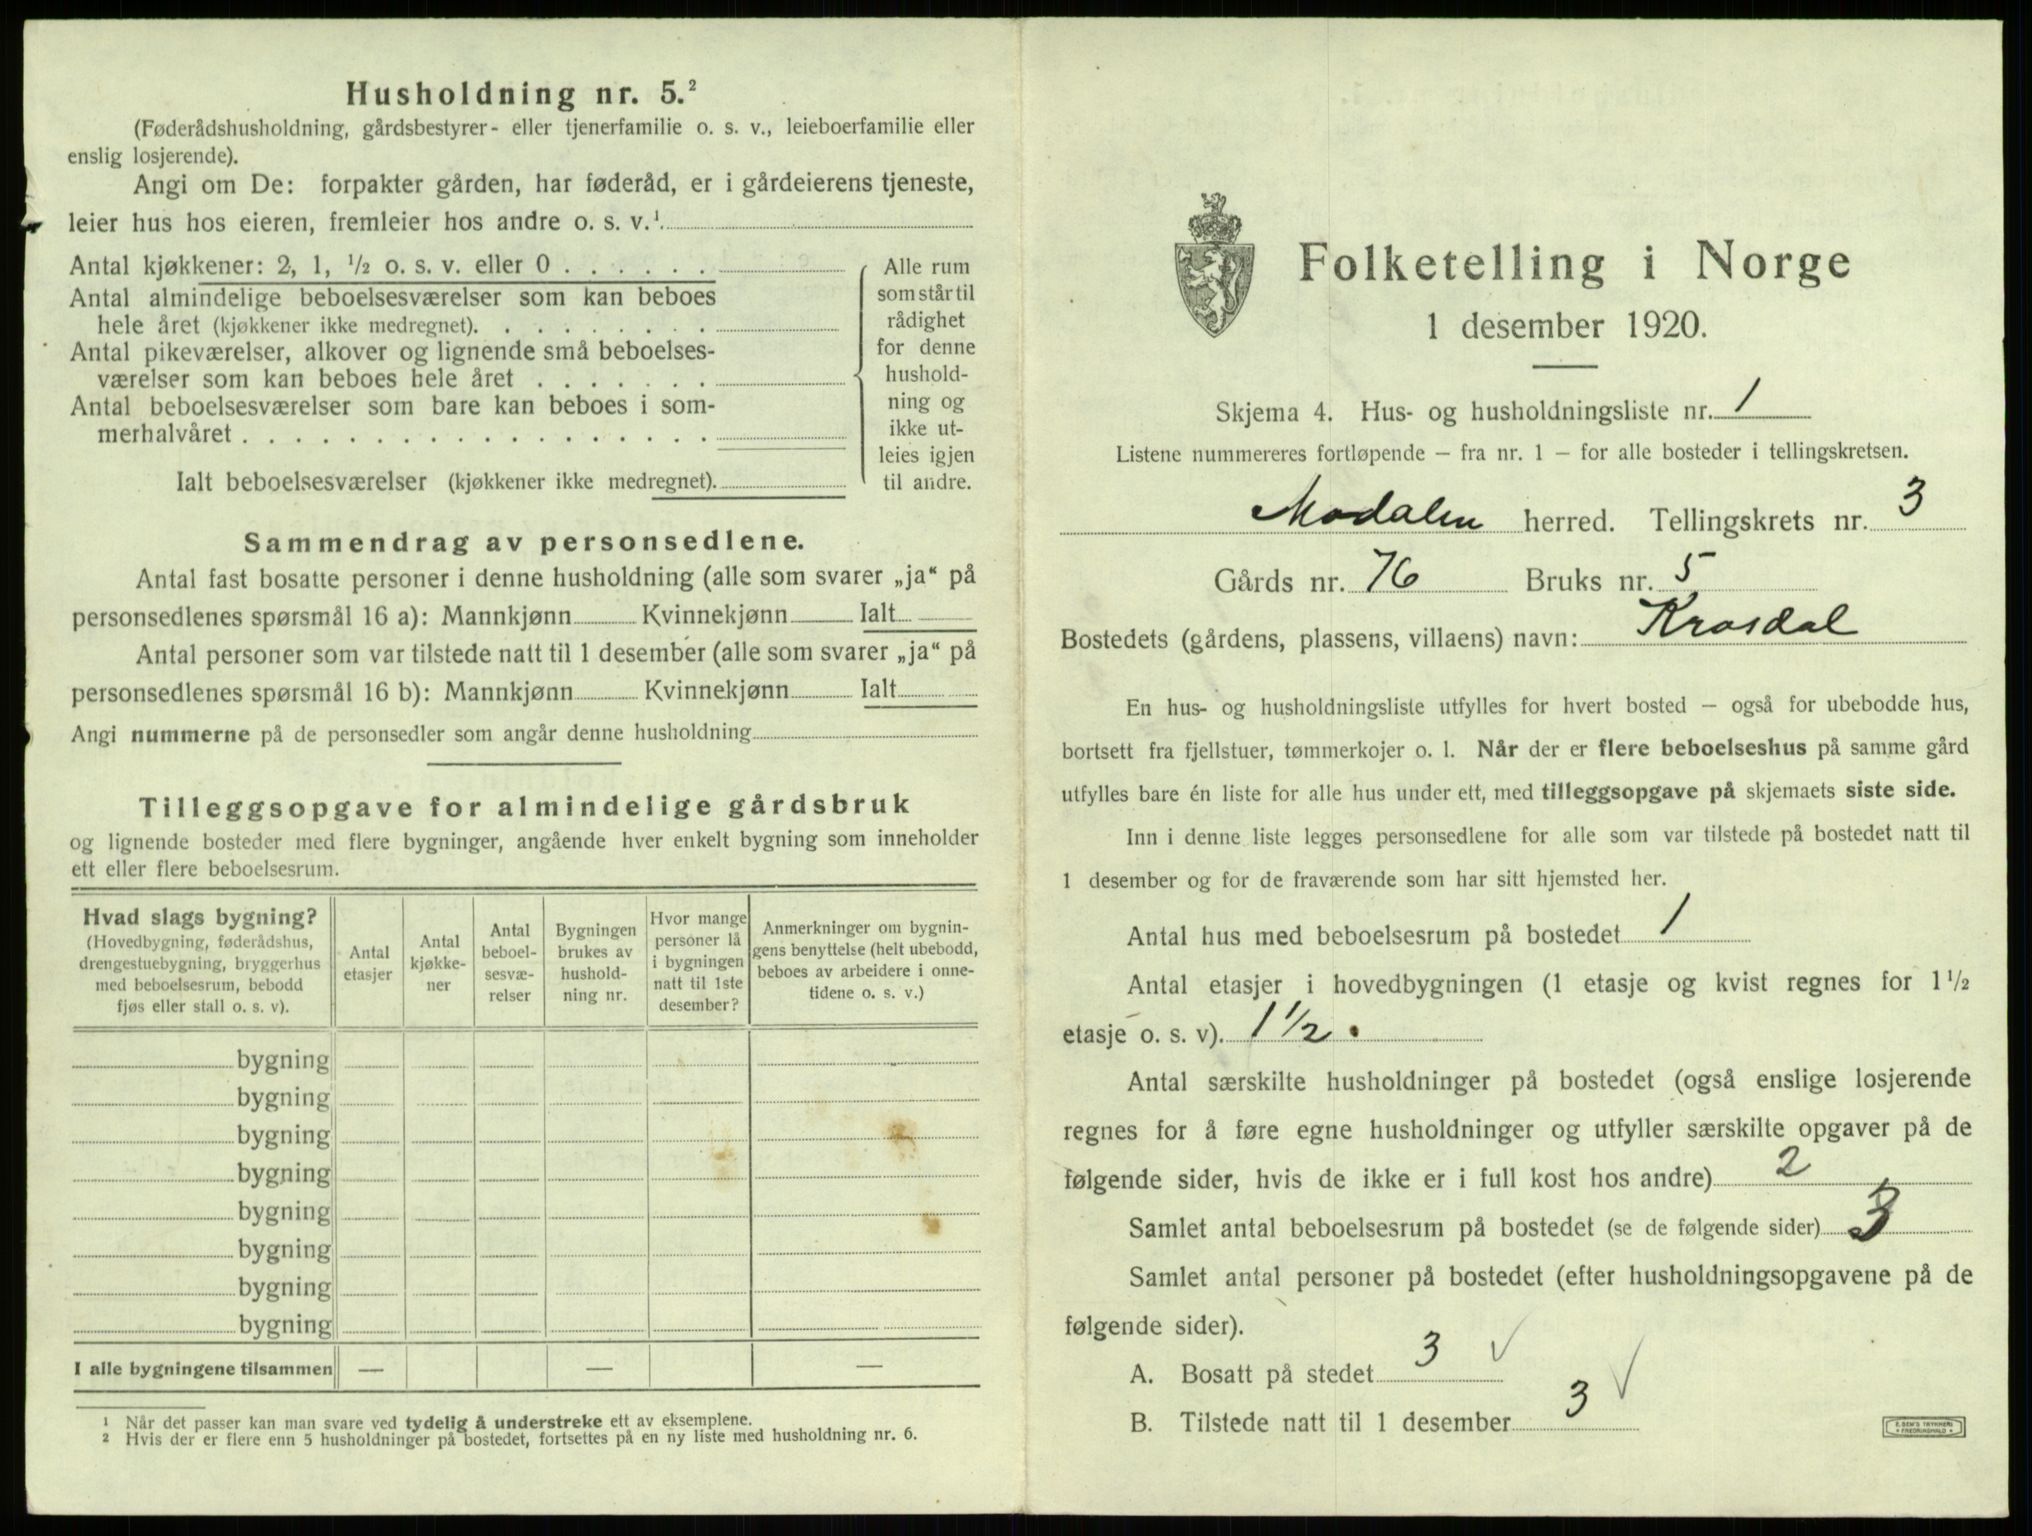 Husholdning nr. 5.²
(Føderådshusholdning, gårdsbestyrer- eller tjenerfamilie o. s. v., leieboerfamilie eller
enslig losjerende).
Angi om De: forpakter gården, har føderåd, er i gårdeierens tjeneste,
leier hus hos eieren, fremleier hos andre o. s. v.¹
Antal kjøkkener: 2, 1, ½ o. s. v. eller 0 . . . . . .
Antal almindelige beboelsesværelser som kan beboes
hele året (kjøkkener ikke medregnet). . . . . . . . .
Antal pikeværelser, alkover og lignende små beboelses-
værelser som kan beboes hele året . . . . . . .
Antal beboelsesværelser som bare kan beboes i som-
merhalvåret . . . . . . . . . . . . . . . . . .
Alle rum
som står til
rådighet
for denne
hushold-
ning og
ikke ut-
leies igjen
til andre.
Ialt beboelsesværelser (kjøkkener ikke medregnet).
Sammendrag av personsedlene.
Antal fast bosatte personer i denne husholdning (alle som svarer „ja“ på
personsedlenes spørsmål 16 a): Mannkjønn Kvinnekjønn Ialt
Antal personer som var tilstede natt til 1 desember (alle som svarer „ja“ på
personsedlenes spørsmål 16 b): Mannkjønn Kvinnekjønn Ialt
Angi nummerne på de personsedler som angår denne husholdning
Tilleggsopgave for almindelige gårdsbruk
og lignende bosteder med flere bygninger, angående hver enkelt bygning som inneholder
ett eller flere beboelsesrum.
Hvad slags bygning?
(Hovedbygning, føderådshus,
drengestuebygning, bryggerhus
med beboelsesrum, bebodd
fjøs eller stall o. s. v).
Antal
etasjer
Antal
kjøkke-
ner
Antal
beboel-
sesvæ-
relser
Bygningen
brukes av
hushold-
ning nr.
Hvor mange
personer lå
i bygningen
natt til 1ste
desember?
Anmerkninger om bygnin-
gens benyttelse (helt ubebodd,
beboes av arbeidere i onne-
tidene o. s. v.)
bygning
bygning
bygning
bygning
bygning
bygning
bygning
bygning
I alle bygningene tilsammen — — —
¹ Når det passer kan man svare ved tydelig å understreke ett av eksemplene.
² Hvis der er flere enn 5 husholdninger på bostedet, fortsettes på en ny liste med husholdning nr. 6.
Folketelling i Norge
1 desember 1920.
Skjema 4. Hus- og husholdningsliste nr. 1
Listene nummereres fortløpende — fra nr. 1 — for alle bosteder i tellingskretsen.
Modalen herred. Tellingskrets nr. 3
Gårds nr. 76 Bruks nr. 5
Bostedets (gårdens, plassens, villaens) navn: Krosdal
En hus- og husholdningsliste utfylles for hvert bosted — også for ubebodde hus,
bortsett fra fjellstuer, tømmerkojer o. l. Når der er flere beboelseshus på samme gård
utfylles bare én liste for alle hus under ett, med tilleggsopgave på skjemaets siste side.
Inn i denne liste legges personsedlene for alle som var tilstede på bostedet natt til
1 desember og for de fraværende som har sitt hjemsted her.
Antal hus med beboelsesrum på bostedet 1
Antal etasjer i hovedbygningen (1 etasje og kvist regnes for 1½
etasje o. s. v). 1 ½ .
Antal særskilte husholdninger på bostedet (også enslige losjerende
regnes for å føre egne husholdninger og utfyller særskilte opgaver på de
følgende sider, hvis de ikke er i full kost hos andre) 2
Samlet antal beboelsesrum på bostedet (se de følgende sider) 3
Samlet antal personer på bostedet (efter husholdningsopgavene på de
følgende sider).
A. Bosatt på stedet 3 ✓
B. Tilstede natt til 1 desember 3 ✓
E. SEM'S TRYKKERI
• FREDRIKSHALD •